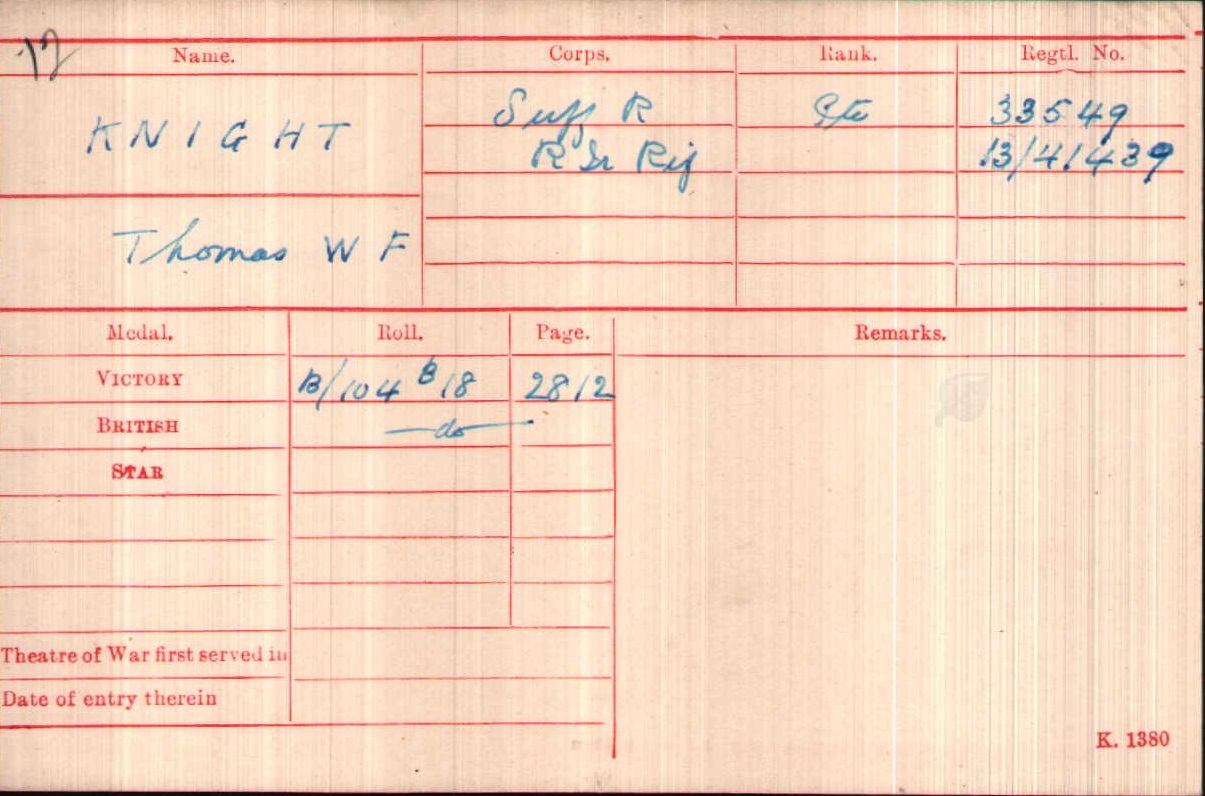 12
Name. Corps. Rank. Regtl. No.
KNIGHT Suff R Pte 33549
R Ir Rif 13/41439
Thomas W F
Medal. Roll. Page. Remarks.
VICTORY B/104 B18 2812
BRITISH —do—
STAR
Theatre of War first served in
Date of entry therein
K. 1380